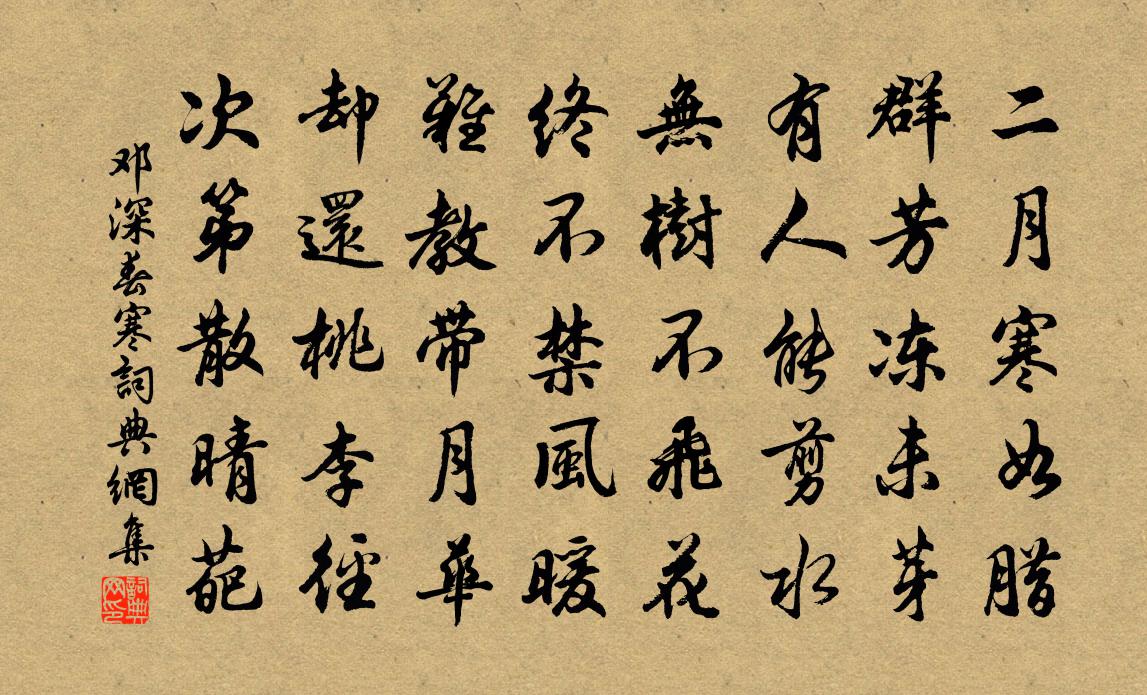 二月寒如腊
群芳冻未芽
有人能剪水
無樹不飛花
終不禁風暖
難教带月華
却還桃李徑
次第散晴葩
邓深春寒詞典網集
詞典网印